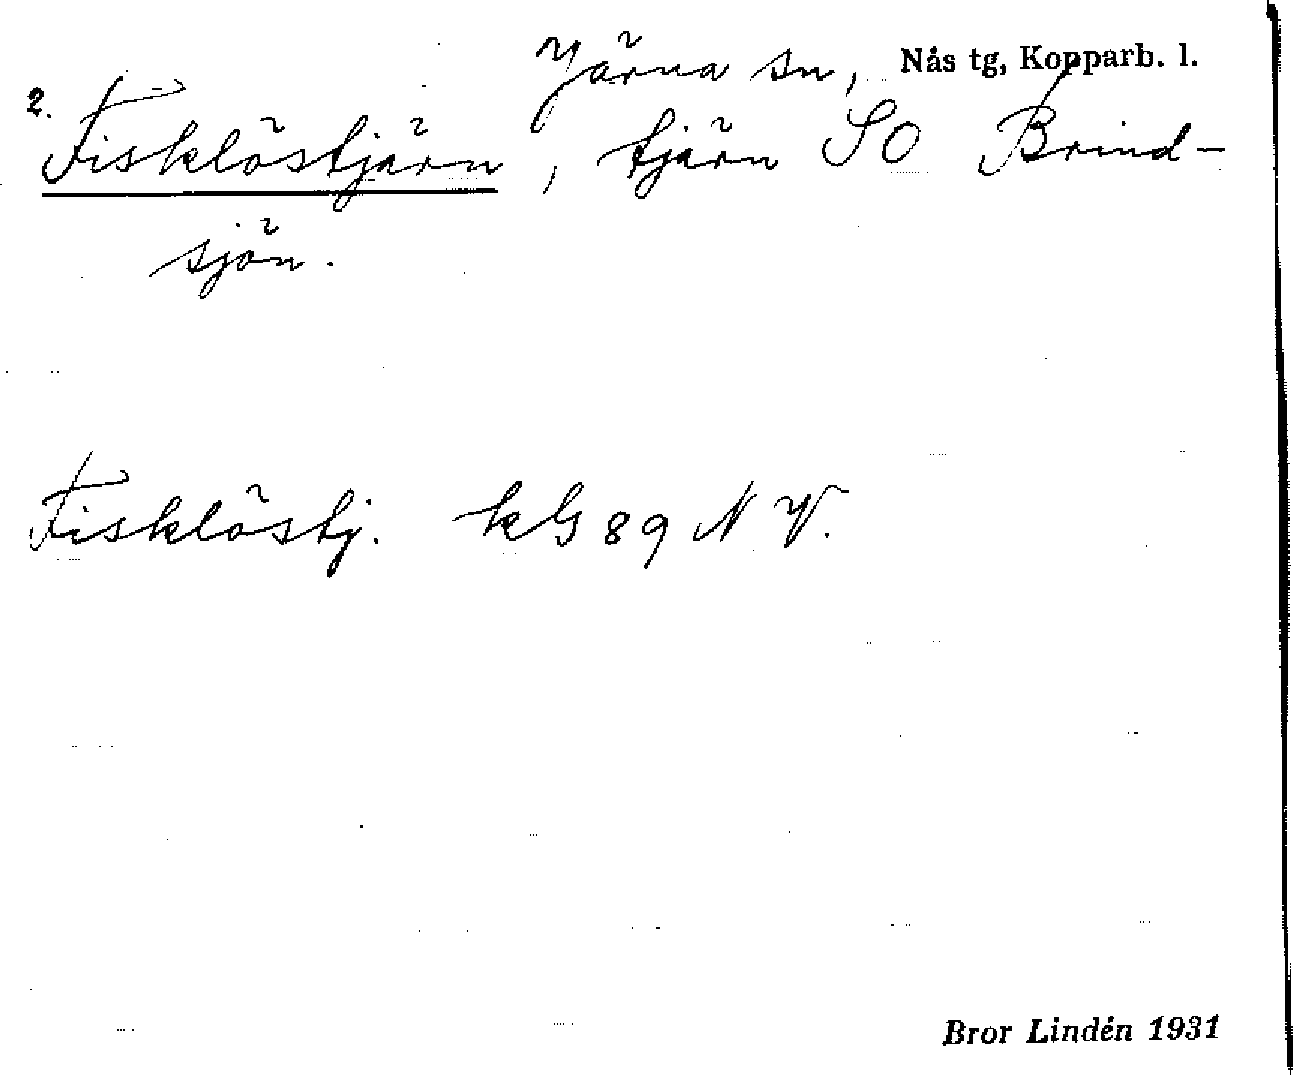 Järna sn, Nås tg, Kopparb. l.
2. Fisklöstjärn, tjärn SO Brind-
sjön.
Fisklöstj. kG 89 NV.
Bror Lindén 1931